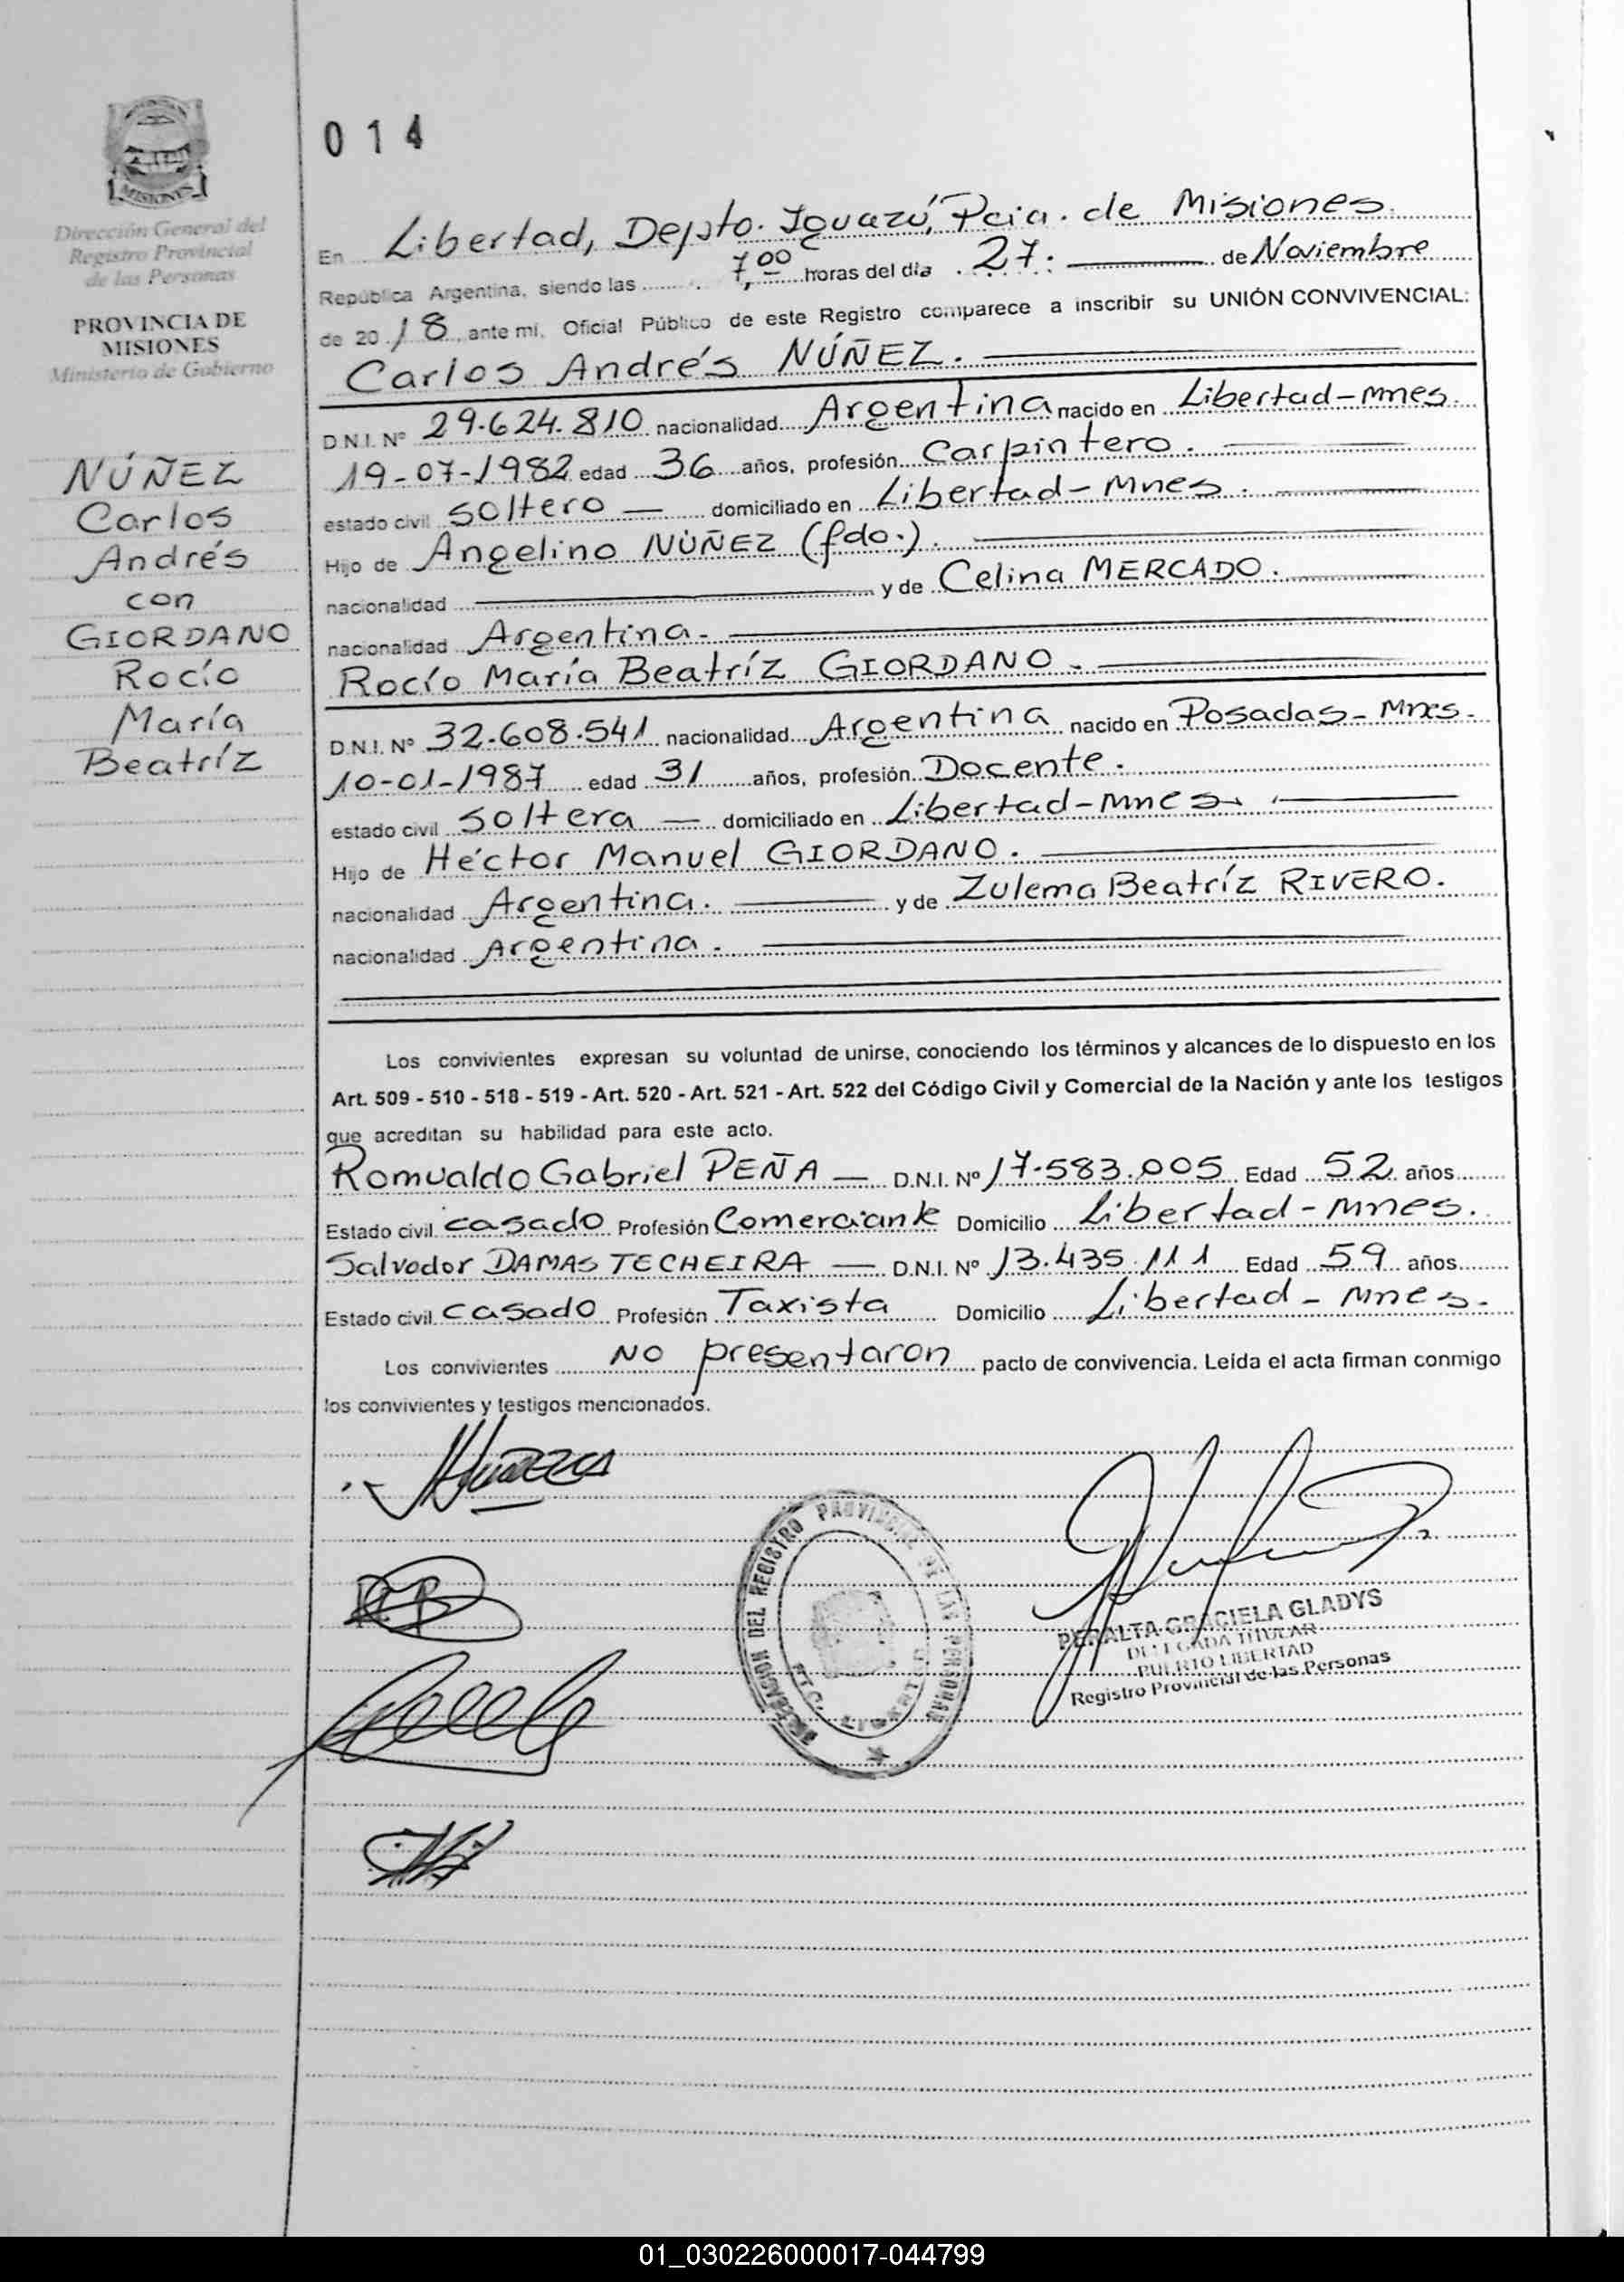 014
MISIONES
Dirección General del
Registro Provincial
de las Personas
PROVINCIA DE
MISIONES
Ministerio de Gobierno
NÚÑEZ
Carlos
Andrés
con
GIORDANO
Rocío
María
Beatríz
En Libertad, Depto. Iguazú, Pcia. de Misiones.
República Argentina, siendo las 7,00 horas del día 27. de Noviembre
de 2018, ante mí, Oficial Público de este Registro comparece a inscribir su UNIÓN CONVIVENCIAL:
Carlos Andrés NÚÑEZ.
D.N.I. Nº 29.624.810 nacionalidad Argentina nacido en Libertad-Mnes.
19-07-1982 edad 36 años, profesión Carpintero.
estado civil soltero — domiciliado en Libertad-Mnes.
Hijo de Angelino NÚÑEZ (fdo.).
nacionalidad y de Celina MERCADO.
nacionalidad Argentina.
Rocío María Beatríz GIORDANO.
D.N.I. Nº 32.608.541 nacionalidad Argentina nacido en Posadas-Mnes.
10-01-1987 edad 31 años, profesión Docente.
estado civil soltera — domiciliado en Libertad-Mnes.
Hijo de Héctor Manuel GIORDANO.
nacionalidad Argentina. y de Zulema Beatríz RIVERO.
nacionalidad Argentina.
Los convivientes expresan su voluntad de unirse, conociendo los términos y alcances de lo dispuesto en los
Art. 509 - 510 - 518 - 519 - Art. 520 - Art. 521 - Art. 522 del Código Civil y Comercial de la Nación y ante los testigos
que acreditan su habilidad para este acto.
Romualdo Gabriel PEÑA — D.N.I. Nº 17.583.005 Edad 52 años
Estado civil casado Profesión Comerciante Domicilio Libertad-Mnes.
Salvador DAMAS TECHEIRA — D.N.I. Nº 13.435.111 Edad 59 años
Estado civil casado Profesión Taxista Domicilio Libertad-Mnes.
Los convivientes NO presentaron pacto de convivencia. Leída el acta firman conmigo
los convivientes y testigos mencionados.
DELEGACION DEL REGISTRO PROVINCIAL DE LAS PERSONAS
PTO. LIBERTAD
PERALTA GRACIELA GLADYS
DELEGADA TITULAR
PUERTO LIBERTAD
Registro Provincial de las Personas
01_030226000017-044799